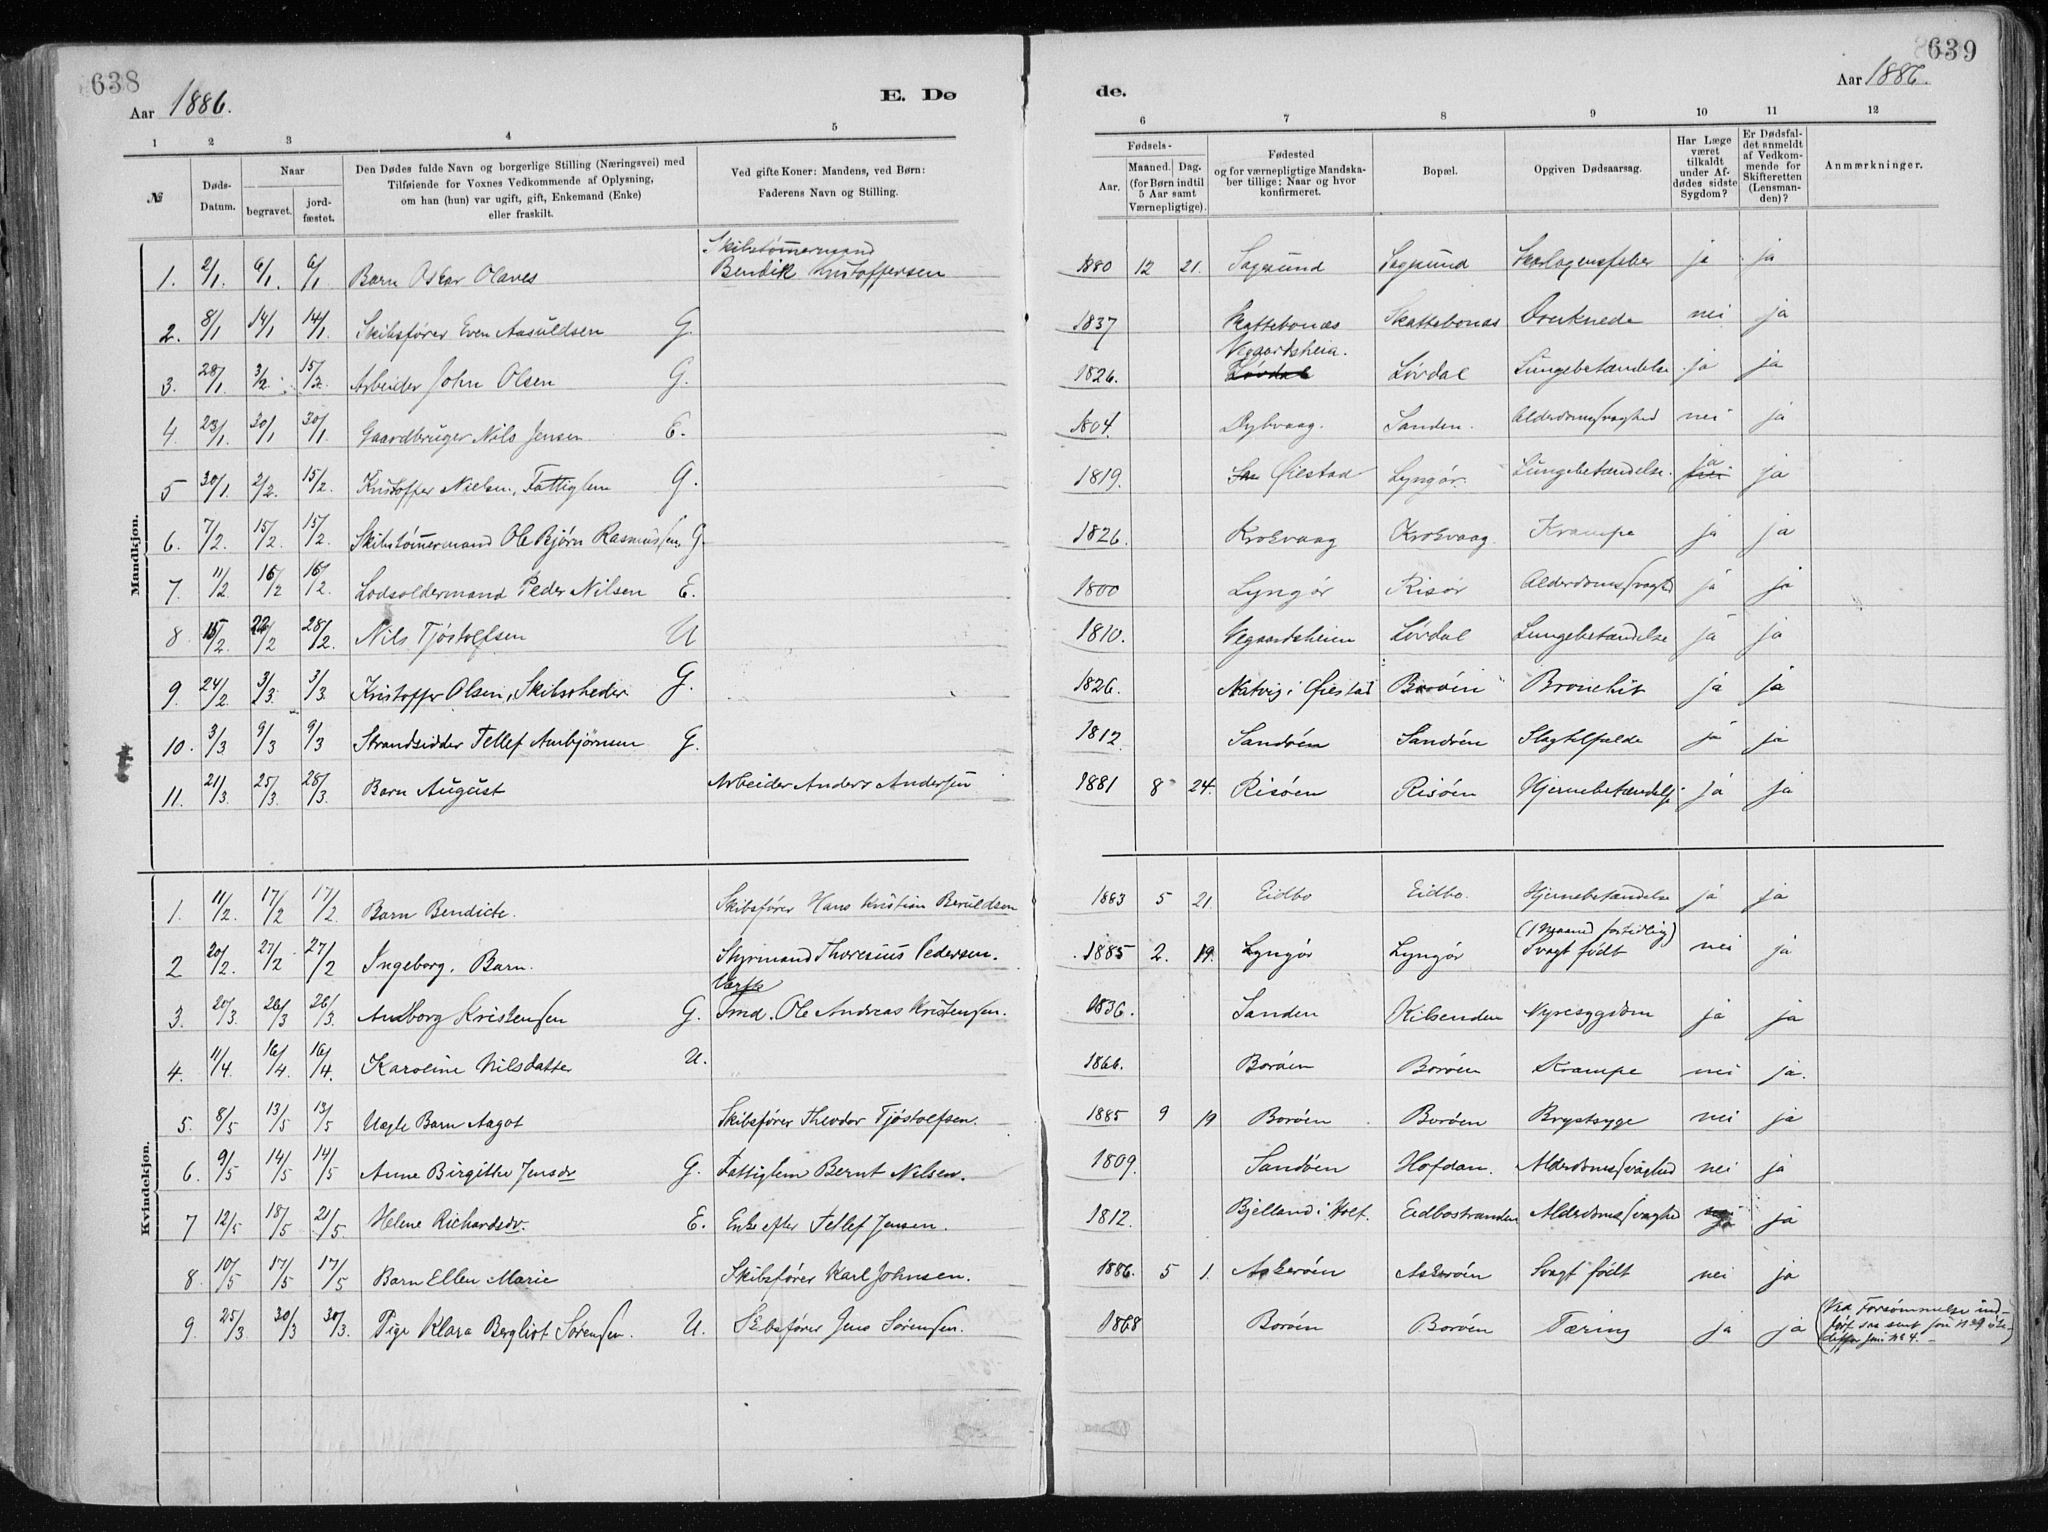 638
Aar 1886.
E. Dø
1 2 3 4 5
№
Døds-Datum.
Naar
begravet.
jord-fæstet.
Den Dødes fulde Navn og borgerlige Stilling (Næringsvei) med
Tilføiende for Voxnes Vedkommende af Oplysning,
om han (hun) var ugift, gift, Enkemand (Enke)
eller fraskilt.
Ved gifte Koner: Mandens, ved Børn:
Faderens Navn og Stilling.
Mandkjøn.
Skibstømmermand
1. 2/1 6/1 6/1 Barn Oskar Olaves Bendik Kristoffersen
2. 8/1 14/1 14/1 Skibsfører Even Aasuldsen G.
3. 28/1 3/2 15/2 Arbeider John Olsen G.
4. 23/1 30/1 30/1 Gaardbruger Nils Jensen E.
5 30/1 2/2 15/2 Kristoffer Nielsen, Fattiglem G.
6. 7/2 15/2 15/2 Skibstømmermand Ole Bjørn Rasmussen G.
7. 11/2 16/2 16/2 Lodsoldermand Peder Nilsen E.
8 15/2 22/2 28/2 Nils Tjøstolfsen U
9. 24/2 3/3 3/3 Kristoffer Olsen, Skibsrheder G.
10. 3/3 9/3 9/3 Strandsidder Tellef Anbjørnsen G.
11. 21/3 25/3 28/3 Barn August Arbeider Anders Andersen
Kvindekjøn.
1. 11/2 17/2 17/2 Barn Bendicte. Skibsfører Hans Kristian Beruldsen
2 20/2 27/2 27/2 Ingeborg, Barn. Styrmand Thoresius Pedersen.
3. 20/3 26/3 26/3 Anborg Kristensen G. Tmd. Ole Andreas Kristensen.
4. 11/4 16/4 16/4 Karoline Nilsdatter U.
5. 8/5 13/5 13/5 Uægte Barn Aagot Skibsfører Theodor Tjøstolfsen.
6. 9/5 14/5 14/5 Anne Birgitte Jensdr G. Fattiglem Bernt Nilsen.
7 12/5 18/5 21/5 Helene Richardsdr. E. Enke efter Tellef Jensen.
8. 10/5 17/5 17/5 Barn Ellen Marie Skibsfører Karl Johnsen.
9. 25/3 30/3 30/3 Pige Klara Bergliot Sørensen. U. Skibsfører Jens Sørensen.
639
Aar 1886.
de.
6 7 8 9 10 11 12
Fødsels-
Aar.
Maaned. Dag.
(for Børn indtil
5 Aar samt
Værnepligtige).
Fødested
og for værnepligtige Mandska-
ber tillige: Naar og hvor
konfirmeret.
Bopæl.
Opgiven Dødsaarsag.
Har Læge
været
tilkaldt
under Af-
dødes sidste
Sygdom?
Er Dødsfal-
det anmeldt
af Vedkom-
mende for
Skifteretten
(Lensman-
den)?
Anmærkninger.
1880 12 21. Sagesund Sagesund Skarlagensfeber ja ja
1837 Skattebonæs Skattebonæs Druknede nei ja
Vegaardsheia.
1826. Løvdal Løvdal Lungebetændelse ja ja
1804. Dybvaag. Sanden. Alderdomssvaghed nei ja
1819. Øiestad Lyngør. Lungebetændelse. ja nei ja
1826. Krokvaag Krokvaag Krampe ja ja
1800 Lyngør Risør Alderdomssvaghed ja ja
1810. Vegaardsheien Løvdal Lungebetændelse ja ja
1826. Natvig i Øiestad Borøen Bronchit ja ja
1812. Sandøen Sandøen Slagtilfælde ja ja
1881 8 24. Risøen Risøen Hjernebetændelse ja ja
1883 5 21. Eidbo Eidbo. Hjernebetændelse ja ja
(1 Maaned fortidlig)
1885 2. 19. Lyngør Lyngør Svagt født nei ja
1836. Sanden Kilsenden Nyresygdom ja ja
1866. Borøen Borøen Krampe nei ja.
1885 9 19 Borøen Borøen Brystsyge nei ja
1809. Sandøen Hofdan. Alderdomssvaghed nei ja
1812. Bjelland i Holt. Eidbostranden Alderdomssvaghed ja ja
1886. 5 1. Askerøen Askerøen Svagt født nei ja
1868 Borøen Borøen Tæring ja ja (Ved Forsømmelse ind-
ført saa sent